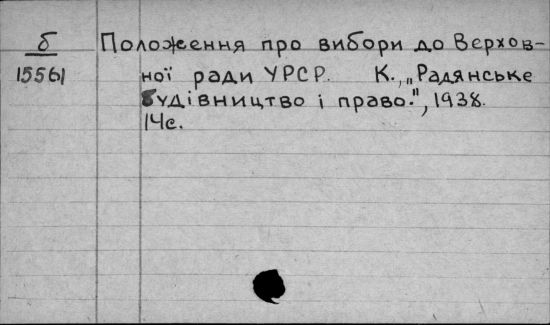 б Положення про вибори до Верхов-
15561 ної ради УРСР. К., „Радянське
будівництво і право.", 1938.
14с.